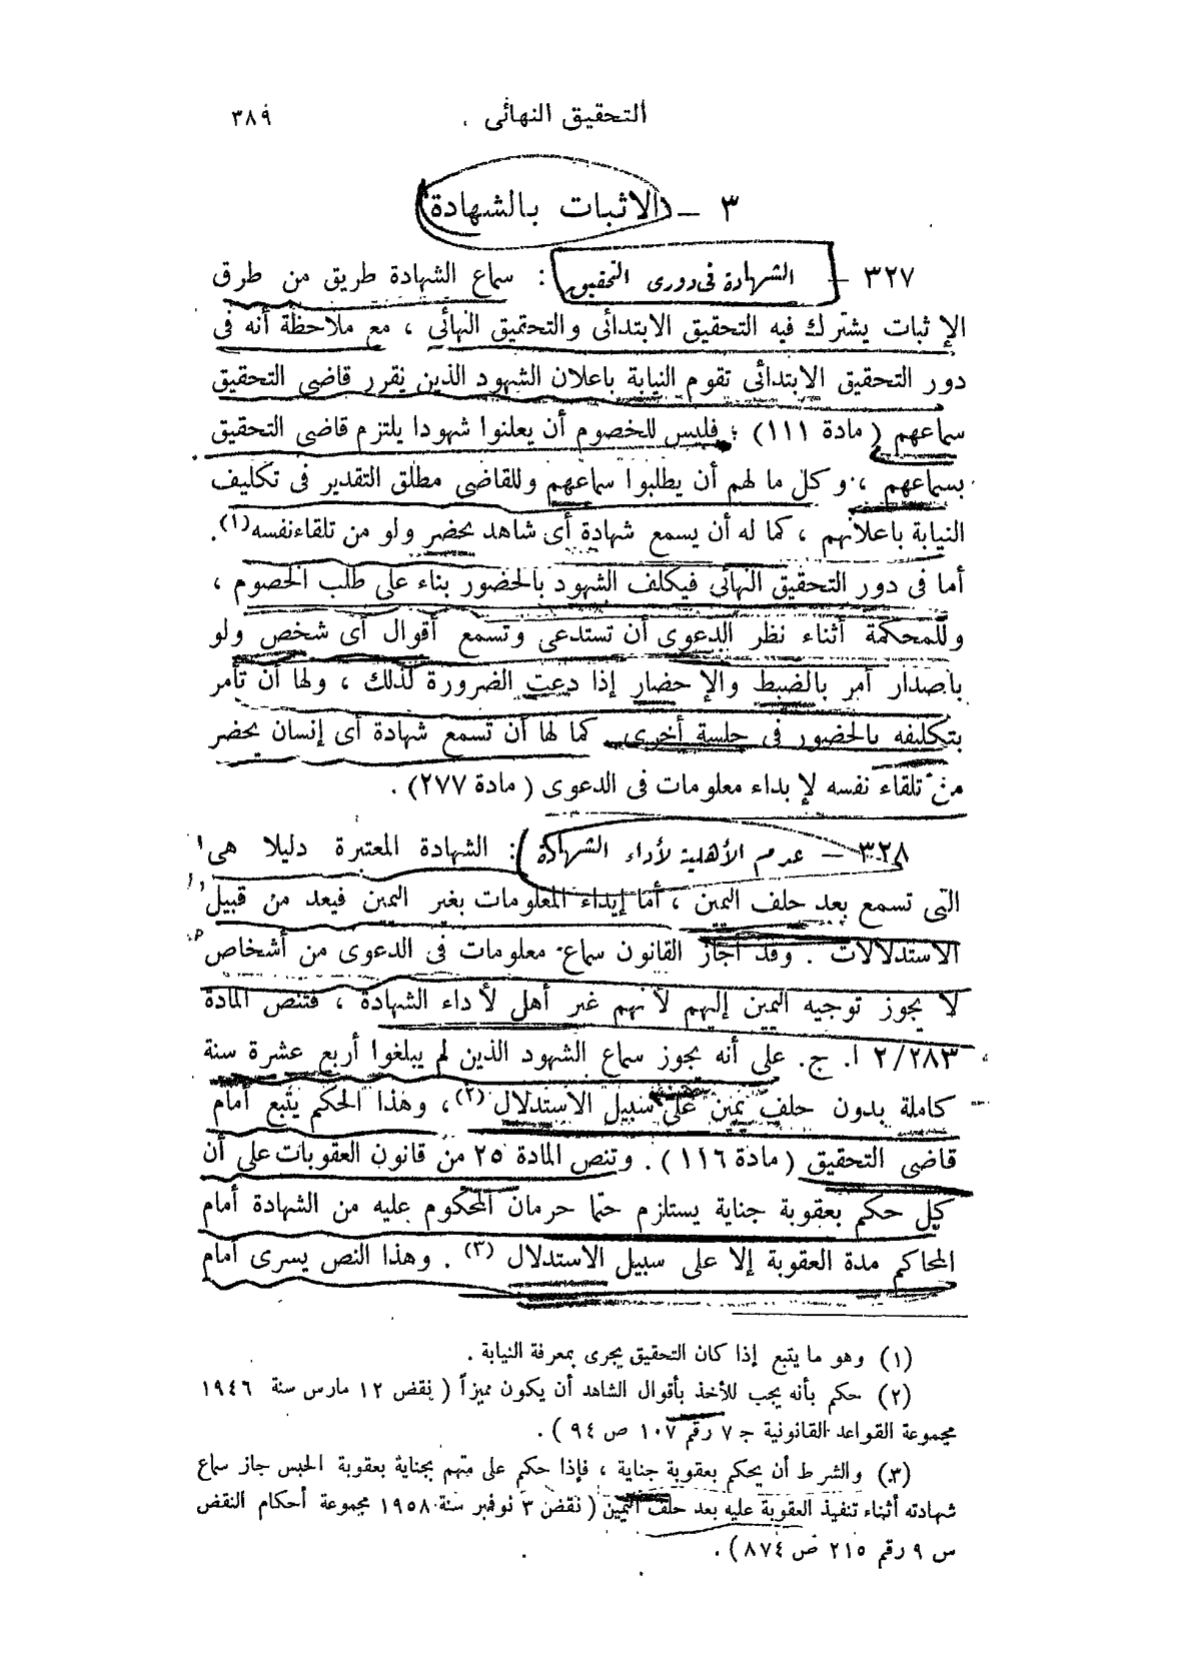 التحقيق النهائى
٣٨٩
٣ - (الاثبات بالشهادة)
٣٢٧ - الشهادة فى دورى التحقيق : سماع الشهادة طريق من طرق
الإثبات يشترك فيه التحقيق الابتدائى والتحقيق النهائى ، مع ملاحظة أنه فى
دور التحقيق الابتدائى تقوم النيابة باعلان الشهود الذين يقرر قاضى التحقيق
سماعهم ( مادة ١١١ ) ؛ فليس للخصوم أن يعلنوا شهودا يلتزم قاضى التحقيق
بسماعهم ، وكل ما لهم أن يطلبوا سماعهم وللقاضى مطلق التقدير فى تكليف
النيابة باعلانهم ، كما له أن يسمع شهادة أى شاهد يحضر ولو من تلقاء نفسه (١) .
أما فى دور التحقيق النهائى فيكلف الشهود بالحضور بناء على طلب الخصوم ،
وللمحكمة أثناء نظر الدعوى أن تستدعى وتسمع أقوال أى شخص ولو
باصدار أمر بالضبط والإحضار إذا دعت الضرورة لذلك ، ولها أن تأمر
بتكليفه بالحضور فى جلسة أخرى كما لها أن تسمع شهادة أى إنسان يحضر
من تلقاء نفسه لإبداء معلومات فى الدعوى ( مادة ٢٧٧ ) .
٣٢٨ - عدم الأهلية لأداء الشهادة : الشهادة المعتبرة دليلا هى
التى تسمع بعد حلف اليمين ، أما إبداء المعلومات بغير اليمين فيعد من قبيل
الاستدلالات . وقد أجاز القانون سماع معلومات فى الدعوى من أشخاص
لا يجوز توجيه اليمين إليهم لأنهم غير أهل لأداء الشهادة ، فتنص المادة
٢/٢٨٣ ا. ج. على أنه يجوز سماع الشهود الذين لم يبلغوا أربع عشرة سنة
كاملة بدون حلف يمين على سبيل الاستدلال (٢) ، وهذا الحكم يتبع أمام
قاضى التحقيق ( مادة ١١٦ ) . وتنص المادة ٢٥ من قانون العقوبات على أن
كل حكم بعقوبة جناية يستلزم حتما حرمان المحكوم عليه من الشهادة أمام
المحاكم مدة العقوبة إلا على سبيل الاستدلال (٣) . وهذا النص يسرى أمام
(١) وهو ما يتبع إذا كان التحقيق يجرى بمعرفة النيابة .
(٢) حكم بأنه يجب للأخذ بأقوال الشاهد أن يكون مميزاً ( نقض ١٢ مارس سنة ١٩٤٦
مجموعة القواعد القانونية ج ٧ رقم ١٠٧ ص ٩٤ ) .
(٣) والشرط أن يحكم بعقوبة جناية ، فإذا حكم على متهم بجناية بعقوبة الحبس جاز سماع
شهادته أثناء تنفيذ العقوبة عليه بعد حلف اليمين ( نقض ٣ نوفمبر سنة ١٩٥٨ مجموعة أحكام النقض
س ٩ رقم ٢١٥ ص ٨٧٤ ) .